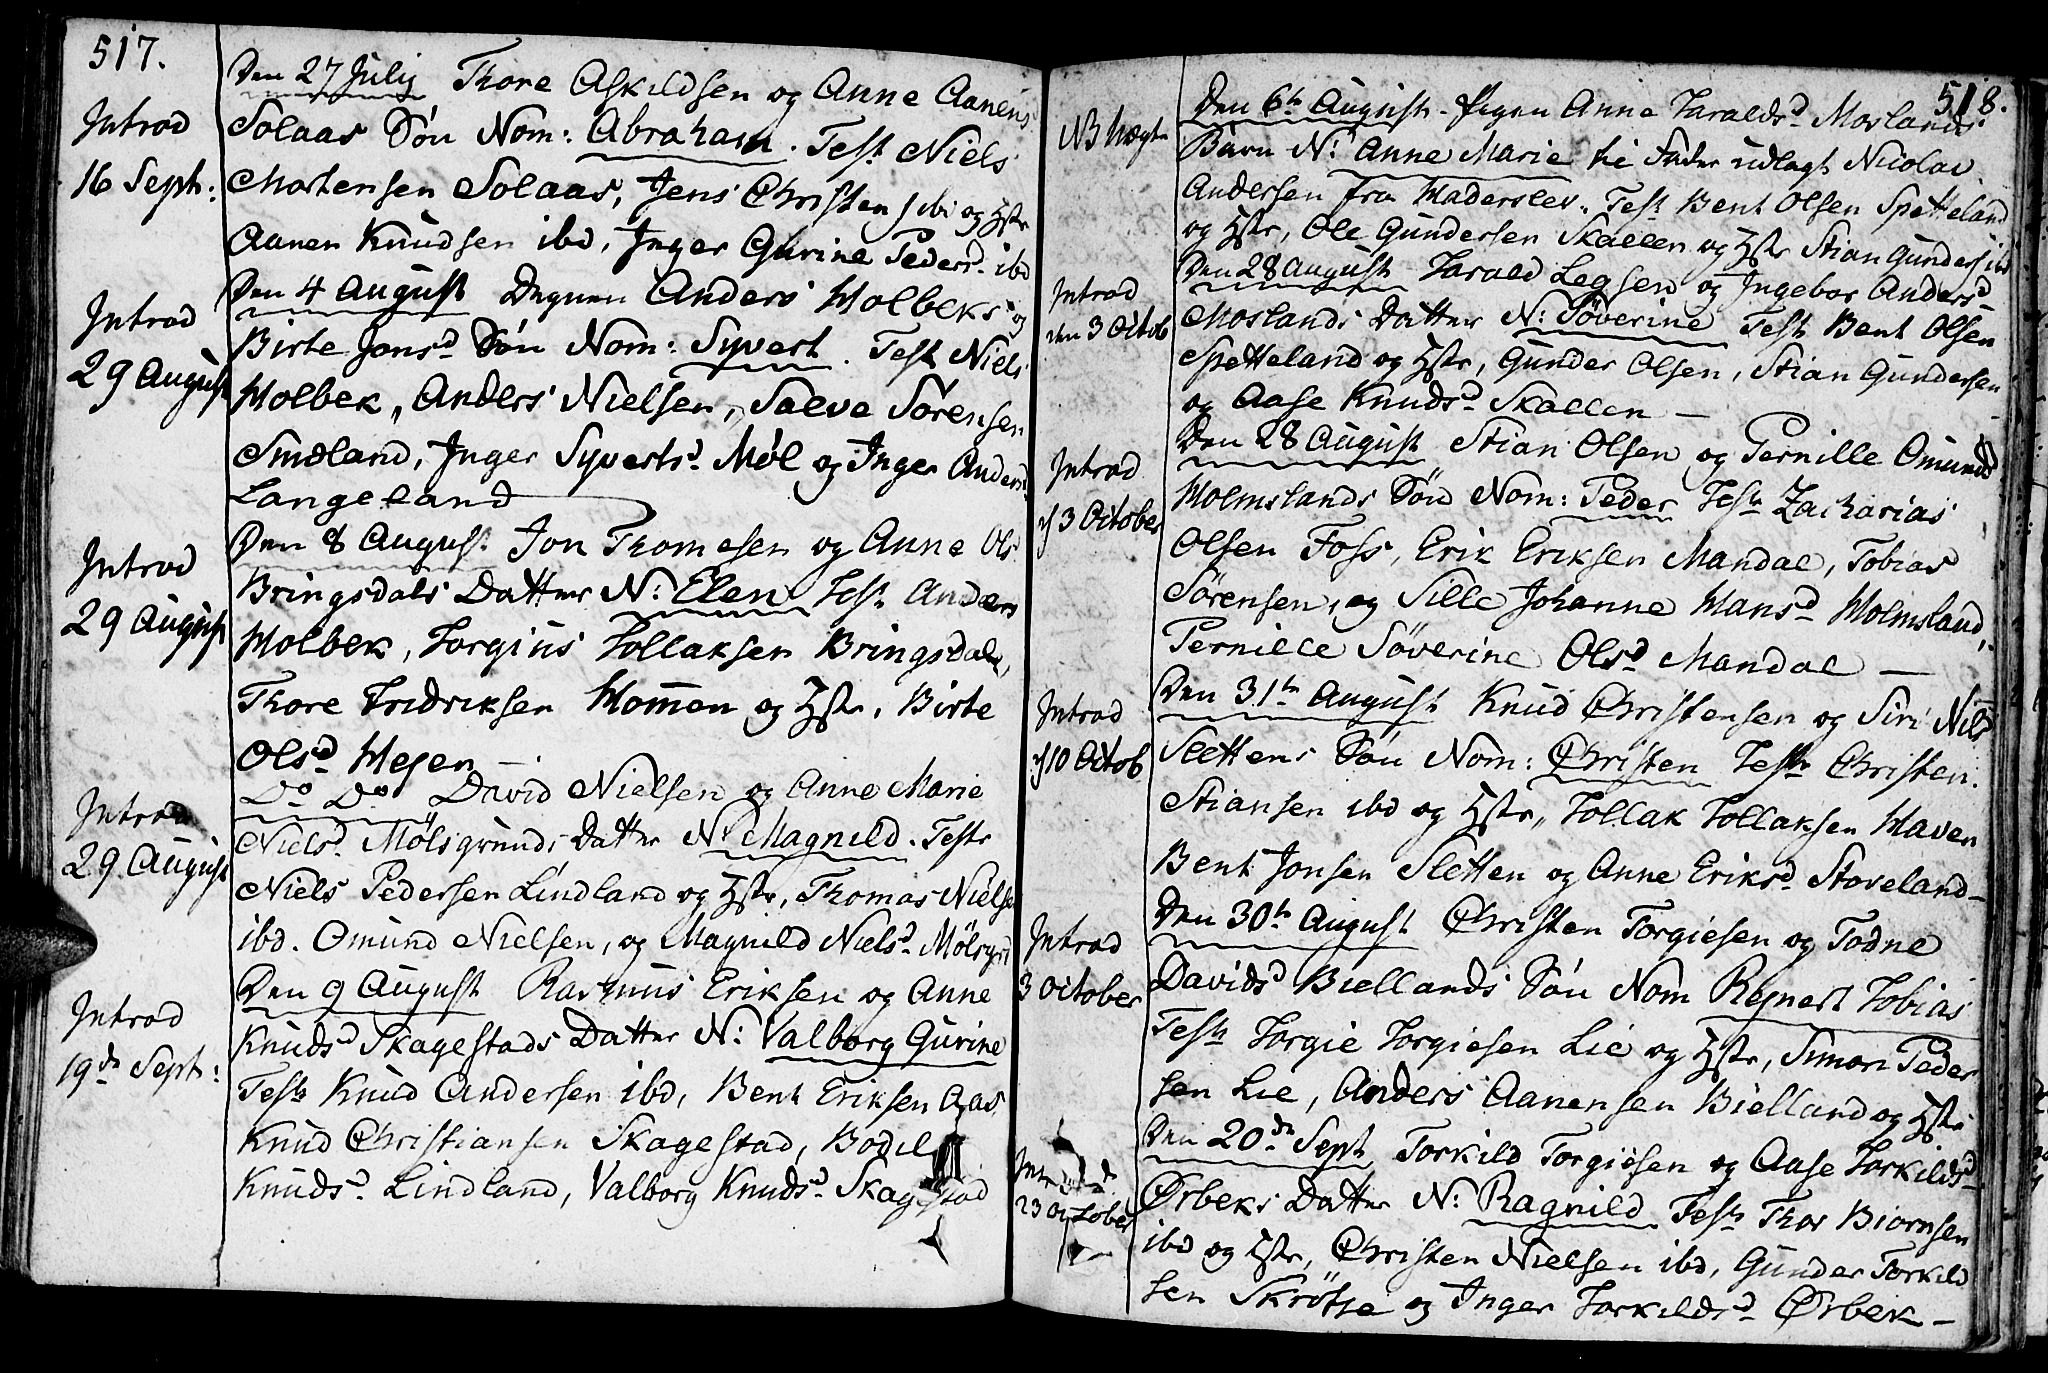 517.
Introd
16 Sept:
Den 27 Julij Thore Askildsen og Anne Aanens
Solaas Søn Nom: Abraham. Test Niels
Mortensen Solaas, Jens Christens ibi og Hstr
Aanen Knudsen ibd, Inger Gurine Pedersd. ibd
Introd
29 August
Den 4 August Degnen Anders Holbeks og
Birte Jonsd Søn Nom: Syvert. Test Niels
Holbek, Anders Nielsen, Salve Sørensen
Smeland, Inger Syvertsd. Møl og Inger Andersd
Langeland
Introd
29 August
Den 8 August Jon Thomesen og Anne Ols
Bringsdals Datter N: Elen Test Anders
Holbek, Torgius Tollaksen Bringsdale,
Thore Fridriksen Homen og Hstr, Birte
Olsd Hegen
Introd
29 August
Do Do David Nielsen og Anne Marie
Nielsd. Mölsgrunds Datter N: Magnild. Teste
Niels Pedersen Lindland og Hstr, Thomas Nielsen
ibd. Omund Nielsen, og Magnild Nielsd. Mölsgrd
Introd
19de Sept:
Den 9 August Rasmus Eriksen og Anne
Knudsd Skagestads Datter N: Valborg Gurine
Test Knud Andersen ibd, Bent Eriksen Aas
Knud Christiansen Skagestad, Bodil
Knudsd. Lindland, Valborg Knudsd. Skagestad
518.
NB Uægte
Den 6te August Pigen Anne Taraldsd Moslands
Barn N: Anne Marie til Fader udlagt Nicolai
Andersen fra Haderslev. Test Bent Olsen Spetteland
og Hstr, Ole Gundersen Skallen og Hstr Stian Gunders ibd
Introd
den 3 Octob
Den 28 August Tarald Legsen og Ingebor Andersd
Moslands Datter N: Söverine Test Bent Olsen
Spetteland og Hstr, Gunder Olsen, Stian Gundersen
og Aase Knudsd Skallen —
Introd
d 3 October
Den 28 August Stian Olsen og Pernille Omundsd
Holmslands Søn Nom: Peder Test Zacharias
Olsen Foss, Erik Eriksen Mandal, Tobias
Sörensen, og Sille Johanne Hansd Holmsland,
Pernille Söverine Olsd Mandal —
Introd
d 10 Octob
Den 31te August Knud Christensen og Siri Nilsd
Slettens Søn Nom: Christen Test Christen
Stiansen ibd og Hstr, Tollak Tollaksen Haven
Bent Jonsen Sletten og Anne Eriksd Stoveland—
Introd
3 October
Den 30te August Christen Torgiesen og Todne
Davidsd Biellands Søn Nom Rejnert Tobias
Test Torgie Torgiesen Lie og Hstr, Simon Peder
sen Lie, Anders Aanensen Bielland og Hstr
Introd
23 October
Den 20de Sept Torkild Torgiösen og Aase Torkildsd
Ørbeks Datter N: Ragnild Test Thor Biornsen
ibd og Hstr, Christen Nielsen ibd, Gunder Torkild
sen Skrötje og Inger Torkildsd Ørbek —